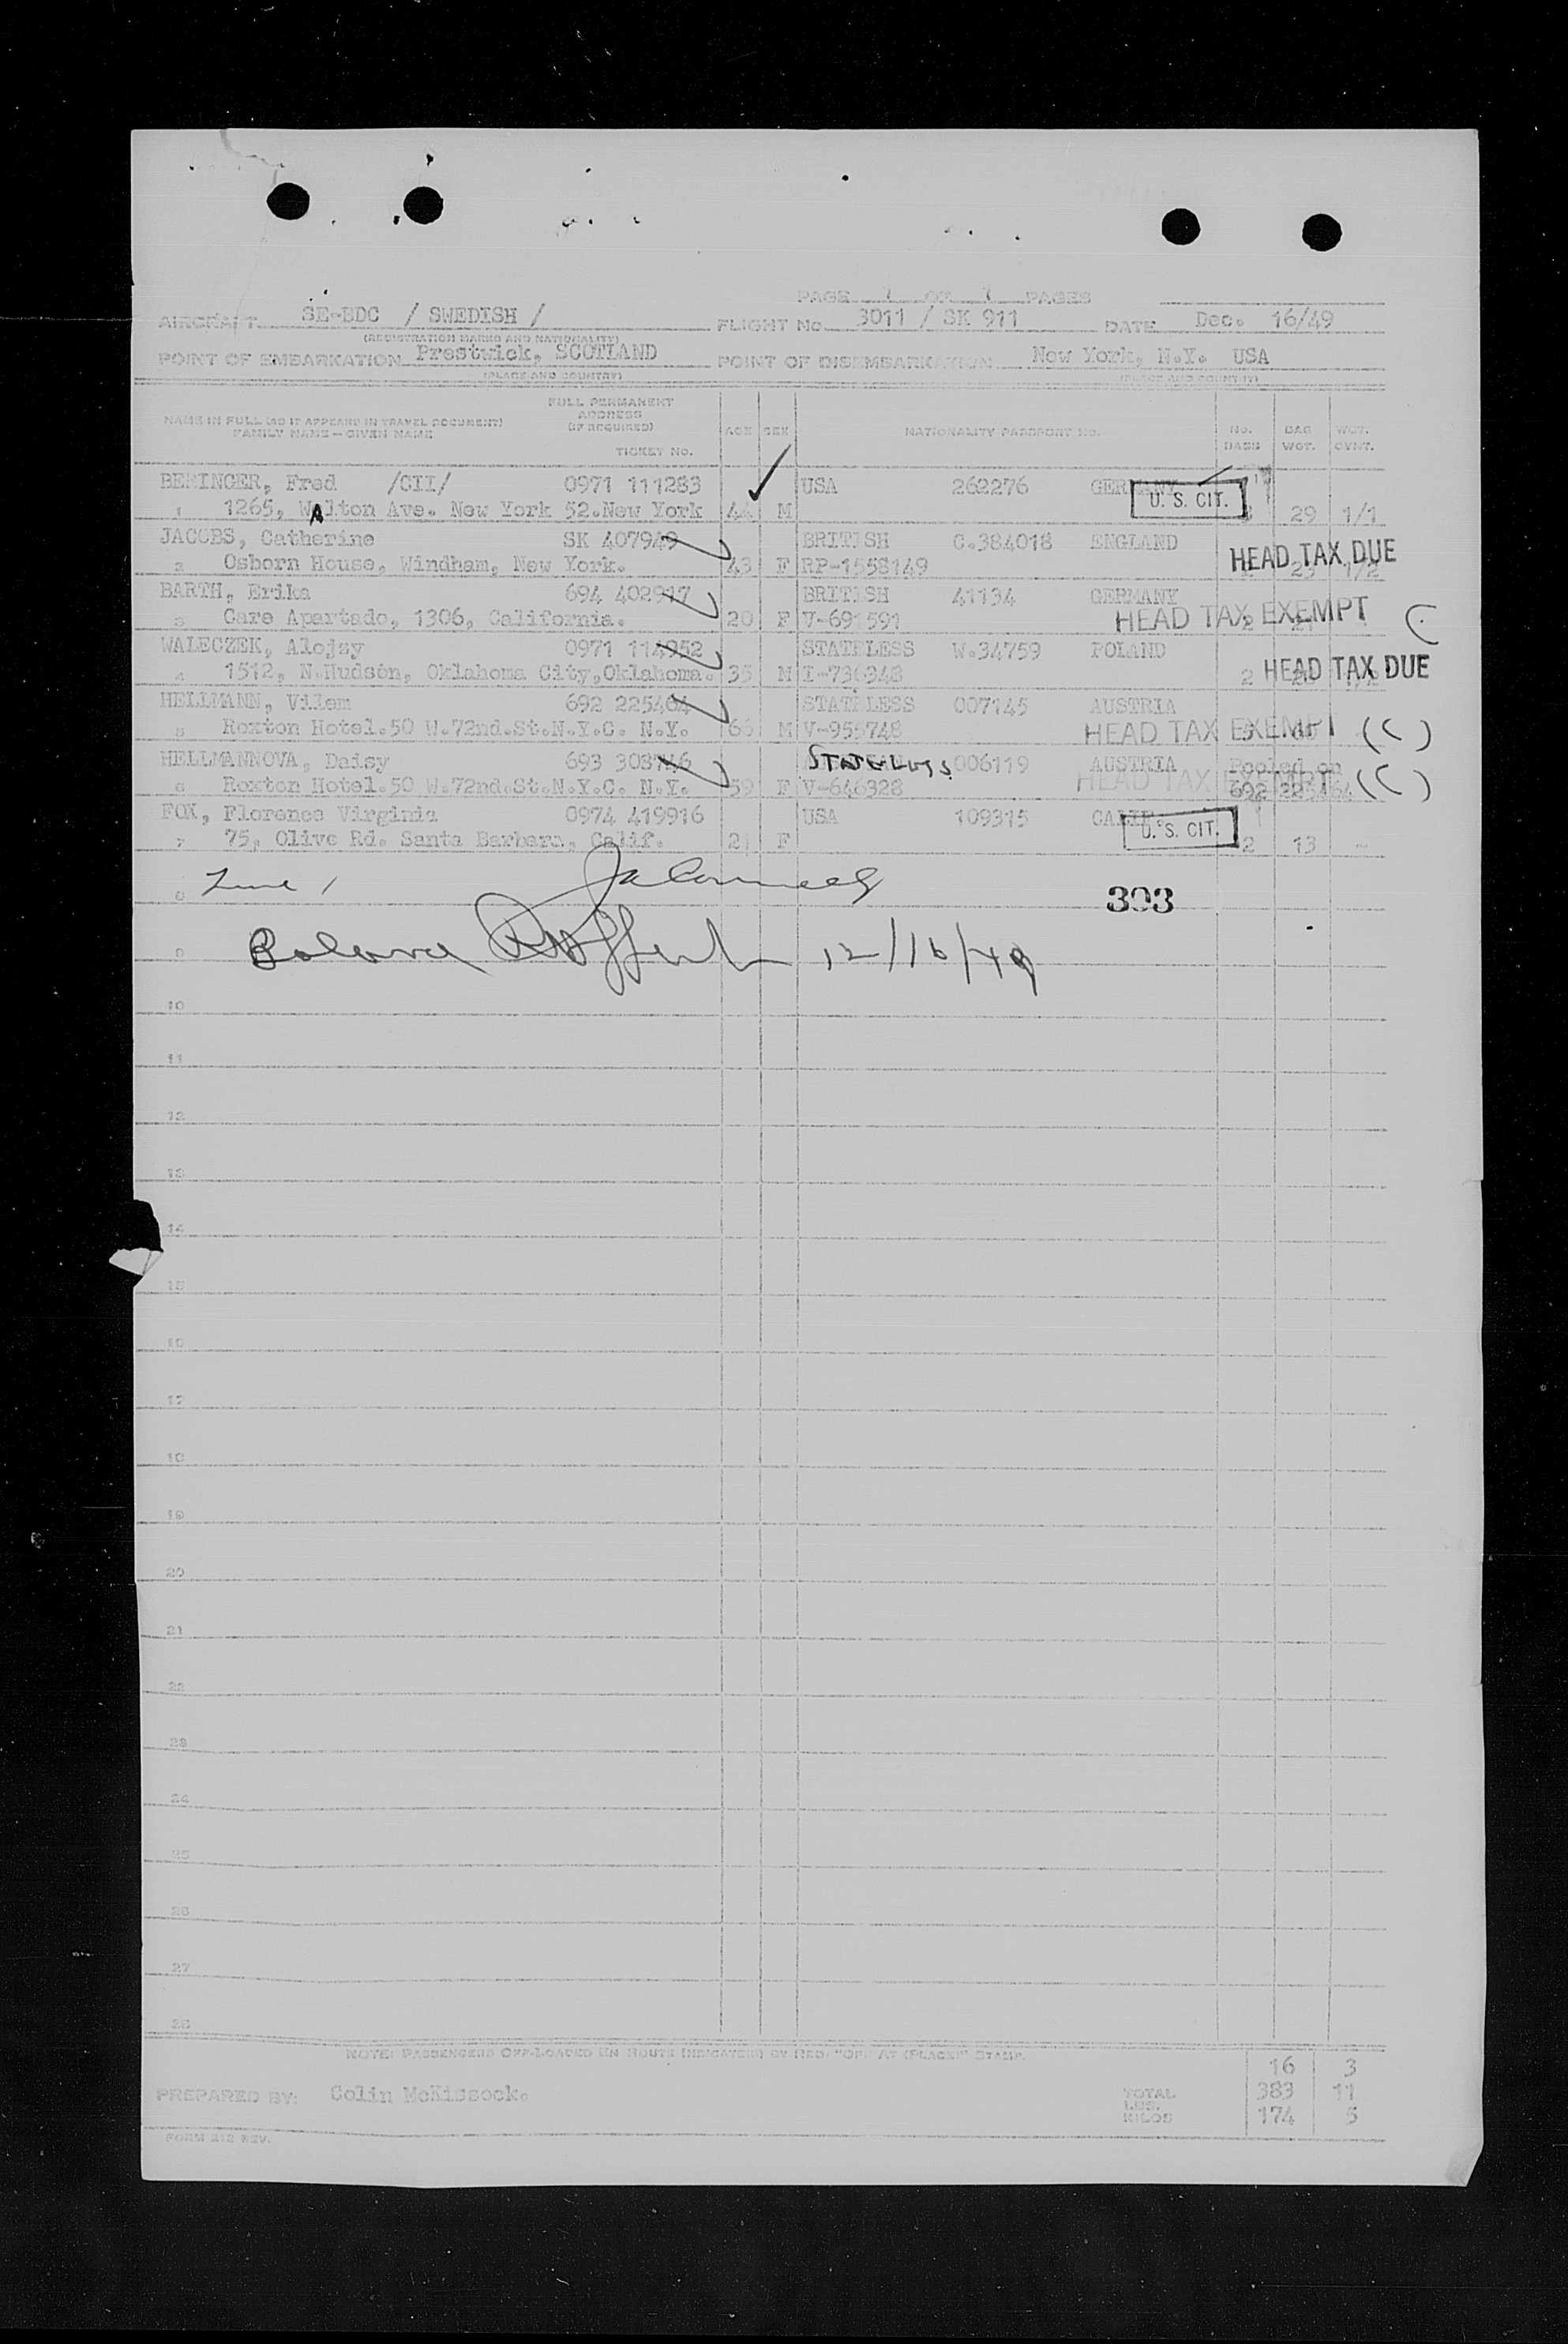 PAGE 1 OF 1 PAGES
AIRCRAFT SE-BDC / SWEDISH / FLIGHT No. 3011 / SK 911 DATE Dec. 16/49
(REGISTRATION MARKS AND NATIONALITY)
POINT OF EMBARKATION Prestwick, SCOTLAND POINT OF DISEMBARKATION New York, N.Y. USA
(PLACE AND COUNTRY) (PLACE AND COUNTRY)
NAME IN FULL (AS IT APPEARS IN TRAVEL DOCUMENT) FAMILY NAME — GIVEN NAME FULL PERMANENT ADDRESS (IF REQUIRED) TICKET No. AGE SEX NATIONALITY PASSPORT No. No. BAGS BAG WGT. WGT. OVNT.
BERINGER, Fred /CII/ 0971 111283 USA 262276 GERMANY U. S. CIT.
1 1265, WAlton Ave. New York 52.New York 44 M 29 1/1
JACOBS, Catherine SK 407949 BRITISH C.384018 ENGLAND HEAD TAX DUE
2 Osborn House, Windham, New York. 43 F RP-1558149 1/2
BARTH, Erika 694 402917 BRITISH 41134 GERMANY
3 Care Apartado, 1306, California. 20 F V-691591 HEAD TAX EXEMPT 2
WALECZEK, Alojzy 0971 114952 STATELESS W.34759 POLAND
4 1512, N.Hudson, Oklahoma City,Oklahoma. 35 M I-736348 2 HEAD TAX DUE
HELLMANN, Vilem 692 225464 STATELESS 007145 AUSTRIA
5 Roxton Hotel.50 W.72nd.St.N.Y.C. N.Y. 66 M V-955748 HEAD TAX EXEMPT (C)
HELLMANNOVA, Daisy 693 308746 STATELESS 006119 AUSTRIA Pooled on
6 Roxton Hotel.50 W.72nd.St.N.Y.C. N.Y. 59 F V-646328 HEAD TAX EXEMPT 692 225464 (C)
FOX, Florence Virginia 0974 419916 USA 109315 CALIF. U. S. CIT.
7 75, Olive Rd. Santa Barbara, Calif. 21 F 2 13 -
8 303
9 12/16/49
10
11
12
13
14
15
16
17
18
19
20
21
22
23
24
25
26
27
28
NOTE: PASSENGERS OFF-LOADED EN ROUTE INDICATED BY RED: "OFF AT (PLACE)" STAMP.
16 3
PREPARED BY: Colin McKissock. TOTAL LBS. 383 11
KILOS 174 5
FORM 212 REV.